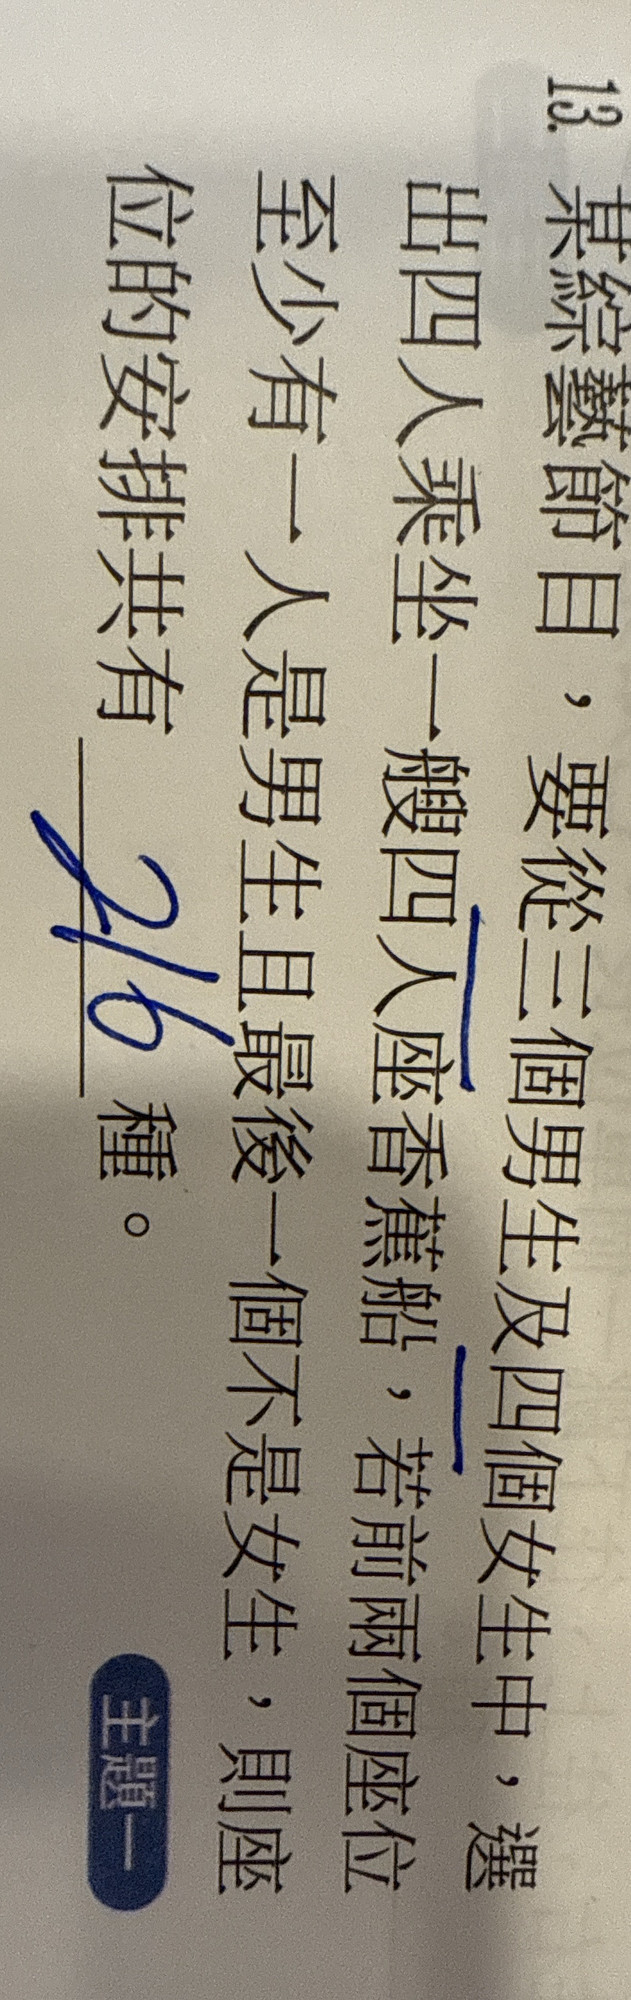 13. 某綜藝節目，要從三個男生及四個女生中，選
出四人乘坐一艘四人座香蕉船，若前兩個座位
至少有一人是男生且最後一個不是女生，則座
位的安排共有 216 種。
主題一